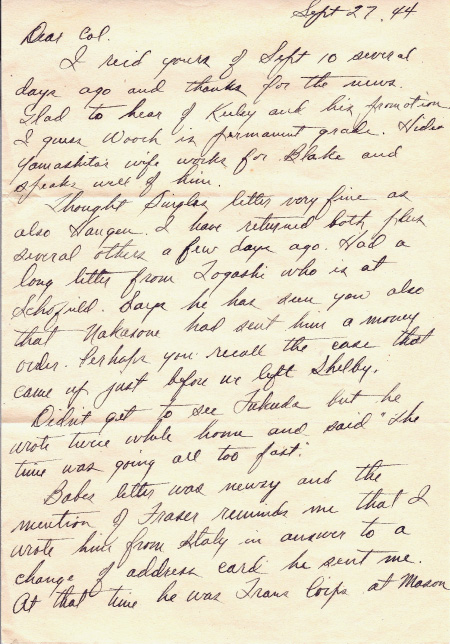 Sept 27, 44
Dear Col.
I recd yours of Sept 10 several
days ago and thanks for the news.
Glad to hear of Kuley and his promotion
I guess Wooch is permanent grade. Hideo
Yamashitas wife works for Blake and
speaks well of him.
Thought Turglas letter very fine as
also Haugen. I have returned both plus
several others a few days ago. Had a
long letter from Togashi who is at
Schofield. Says he has seen you also
that Nakasone had sent him a money
order. Perhaps you recall the case that
came up just before we left Shelby.
Didnt get to see Fukuda but he
wrote twice while home and said "The
time was going all too fast.
Babes letter was newsy and the
mention of Fraser reminds me that I
wrote him from Italy in answer to a
change of address card he sent me.
At that time he was Trans Corps at Mason